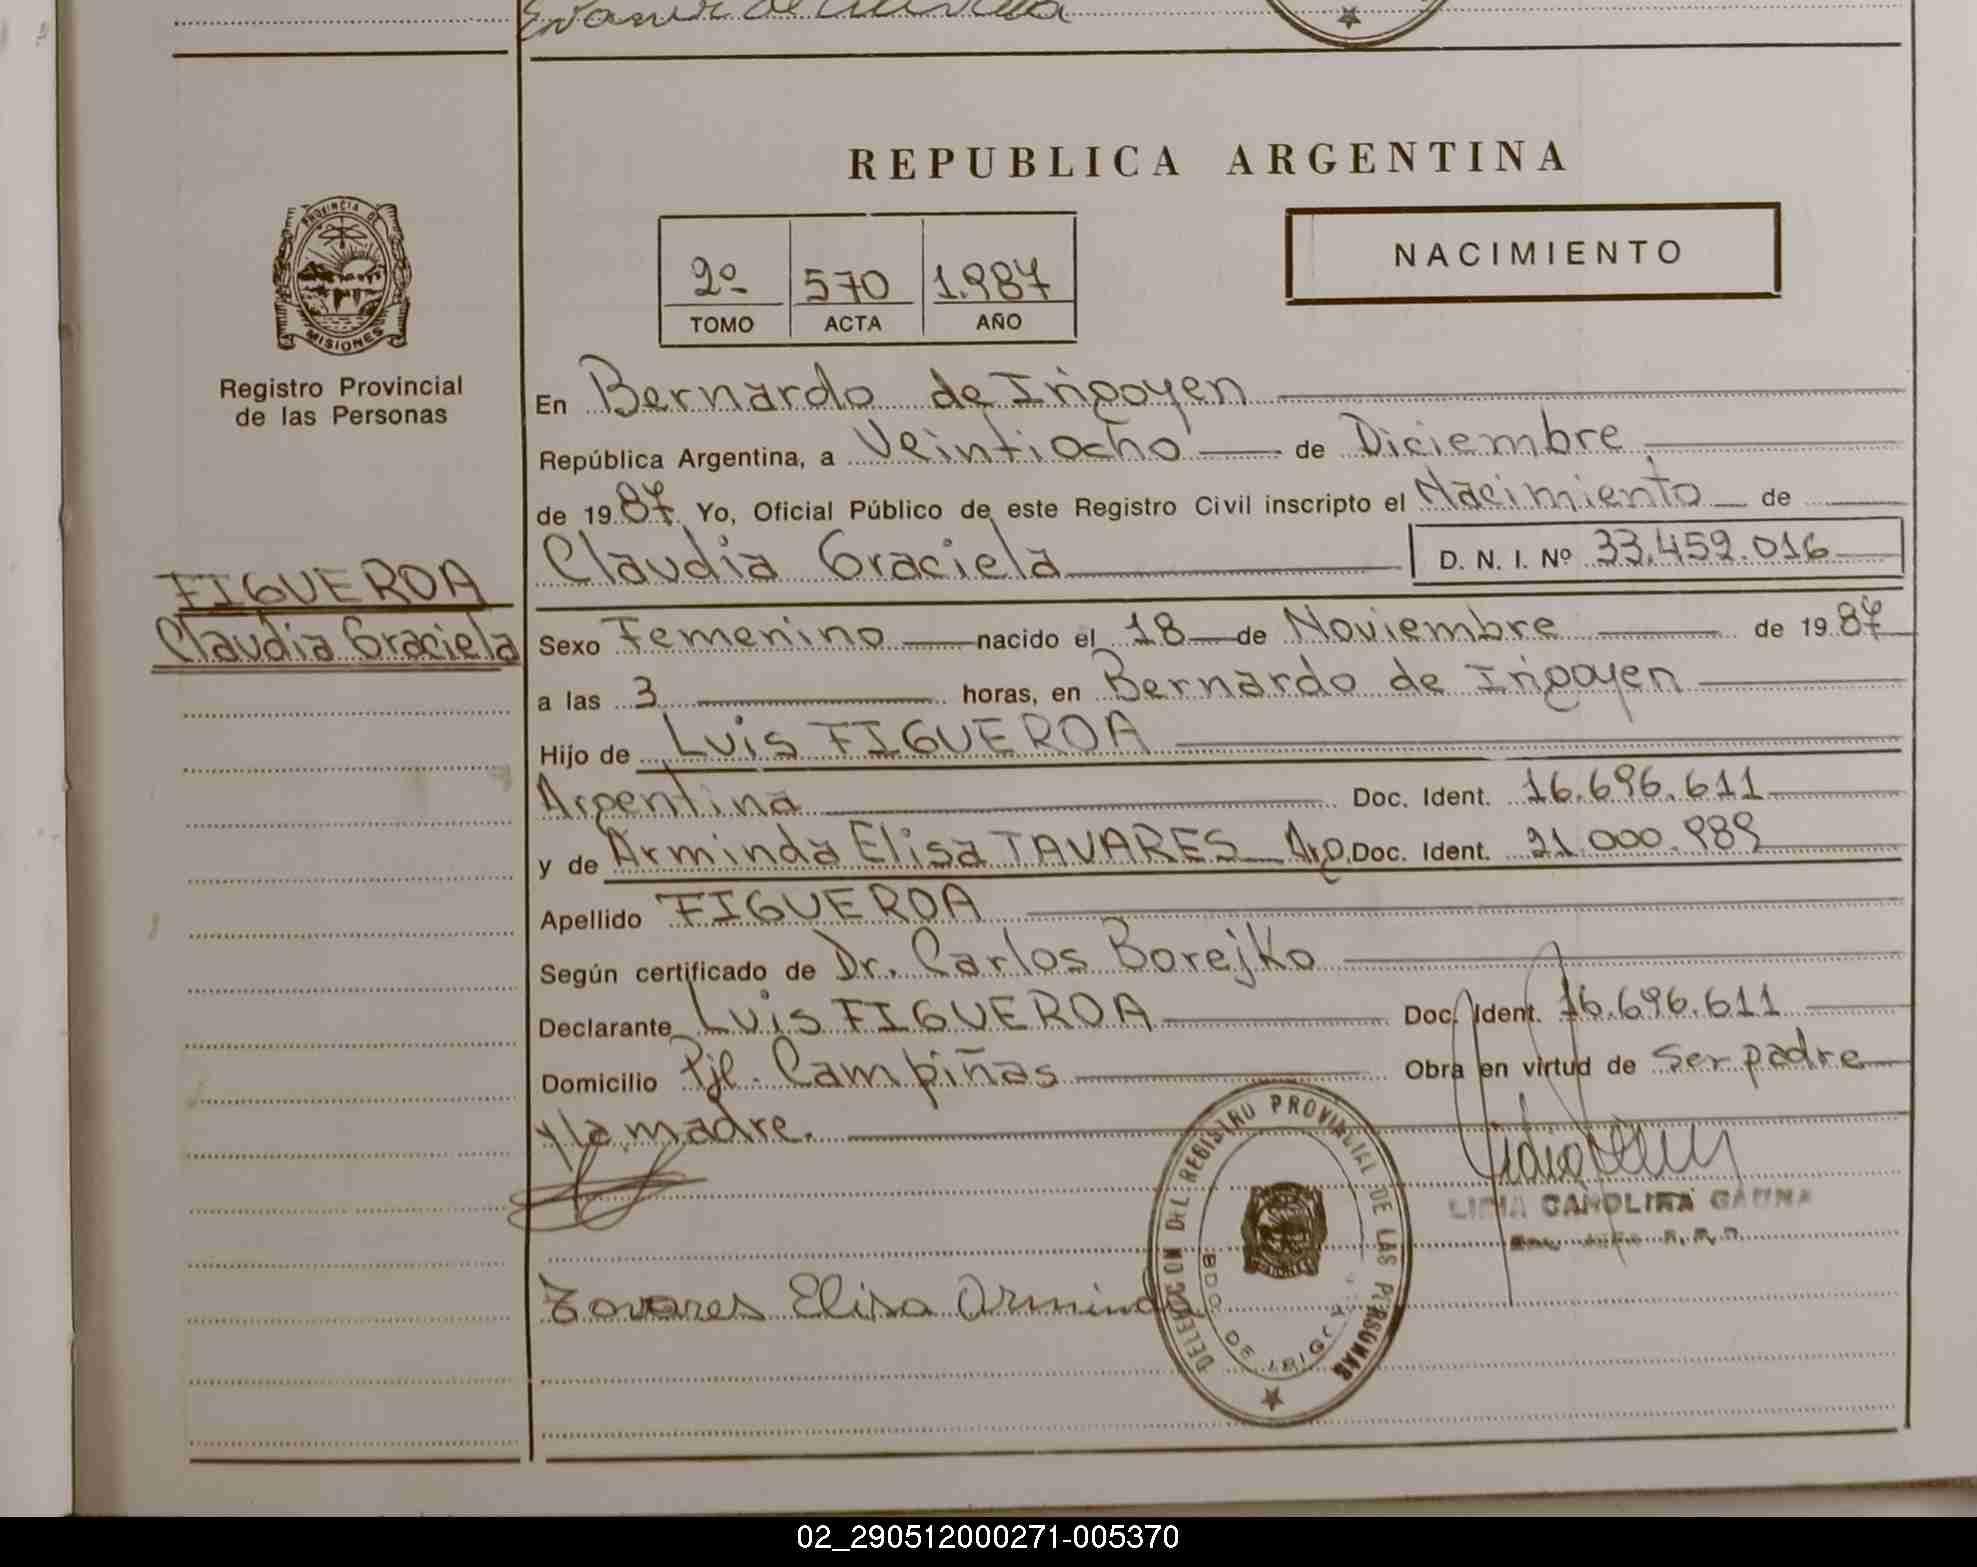 REPUBLICA ARGENTINA
NACIMIENTO
2º 570 1.987
TOMO ACTA AÑO
PROVINCIA DE
MISIONES
Registro Provincial
de las Personas
En Bernardo de Irigoyen
República Argentina, a Veintiocho de Diciembre
de 1987 Yo, Oficial Público de este Registro Civil inscripto el Nacimiento de
Claudia Graciela D. N. I. Nº 33.459.016
FIGUEROA
Claudia Graciela
Sexo Femenino nacido el 18 de Noviembre de 1987
a las 3 horas, en Bernardo de Irigoyen
Hijo de Luis FIGUEROA
Argentina Doc. Ident. 16.696.611
y de Arminda Elisa TAVARES Arg. Doc. Ident. 21.000.989
Apellido FIGUEROA
Según certificado de Dr. Carlos Borejko
Declarante Luis FIGUEROA Doc. Ident. 16.696.611
Domicilio Pje. Campiñas Obra en virtud de ser padre
y la madre.
LIDIA CAROLINA GAUNA
Tavares Elisa Arminda
DELEGACION DEL REGISTRO PROVINCIAL DE LAS PERSONAS
BDO. DE IRIGOYEN
02_290512000271-005370